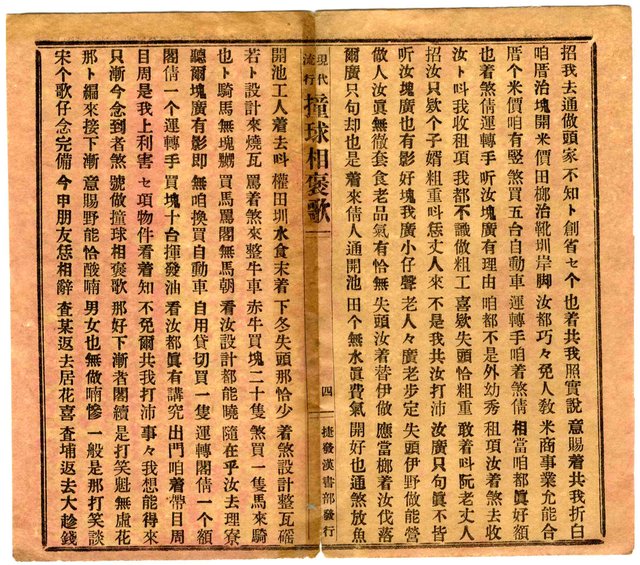 招我去通做頭家　不知卜創省セ个　也着共我照實說　意賜着共我折白
咱厝治塊開米價　田榔治靴圳岸脚　汝都巧々免人敎　米商事業允能合
厝个米價咱有竪　煞買五台自動車　運轉手咱着煞倩　相當咱都眞好額
也着煞倩運轉手　听汝塊廣有理由　咱都不是外幼秀　租項汝着煞去收
汝卜呌我收租項　我都不識做粗工　喜欵失頭恰粗重　敢着呌阮老丈人
招汝只欵个子婿　粗重呌恁丈人來　不是我共汝打沛　汝廣只句眞不皆
听汝塊廣也有影　好塊我廣小仔聲　老人々廣老步定　失頭伊野做能營
做人汝眞無徹套　食老品氣有恰無　失頭汝着替伊做　應當榔着汝伐落
爾廣只句却也是　着來倩人通開池　田个無水眞費氣　開好也通煞放魚
現代流行 撞球相褒歌　四　捷發漢書部發行
開池工人着去呌　權田圳水食末着　下冬失頭那恰少　着煞設計整瓦磘
若卜設計來燒瓦　罵着煞來整牛車　赤牛買塊二十隻　煞買一隻馬來騎
也卜騎馬無塊號　買馬罵閣無馬朝　看汝設計都能曉　隨在乎汝去理寮
聽爾塊廣有影即　無咱換買自動車　自用貸切買一隻　運轉閣倩一个額
閣倩一个運轉手　買塊十台揮發油　看汝都眞有講究　出門咱着帶目周
目周是我上利害　セ項物件看着知　不免爾共我打沛　事々我想能得來
只漸今念到者煞　號做撞球相褒歌　那好下漸者閣續　是打笑魁無慮花
那卜編來接下漸　意賜野能恰酸喃　男女也無做喃慘　一般是那打笑談
宋个歌仔念完備　今甲朋友恁相辭　查某返去居花喜　查埔返去大趁錢